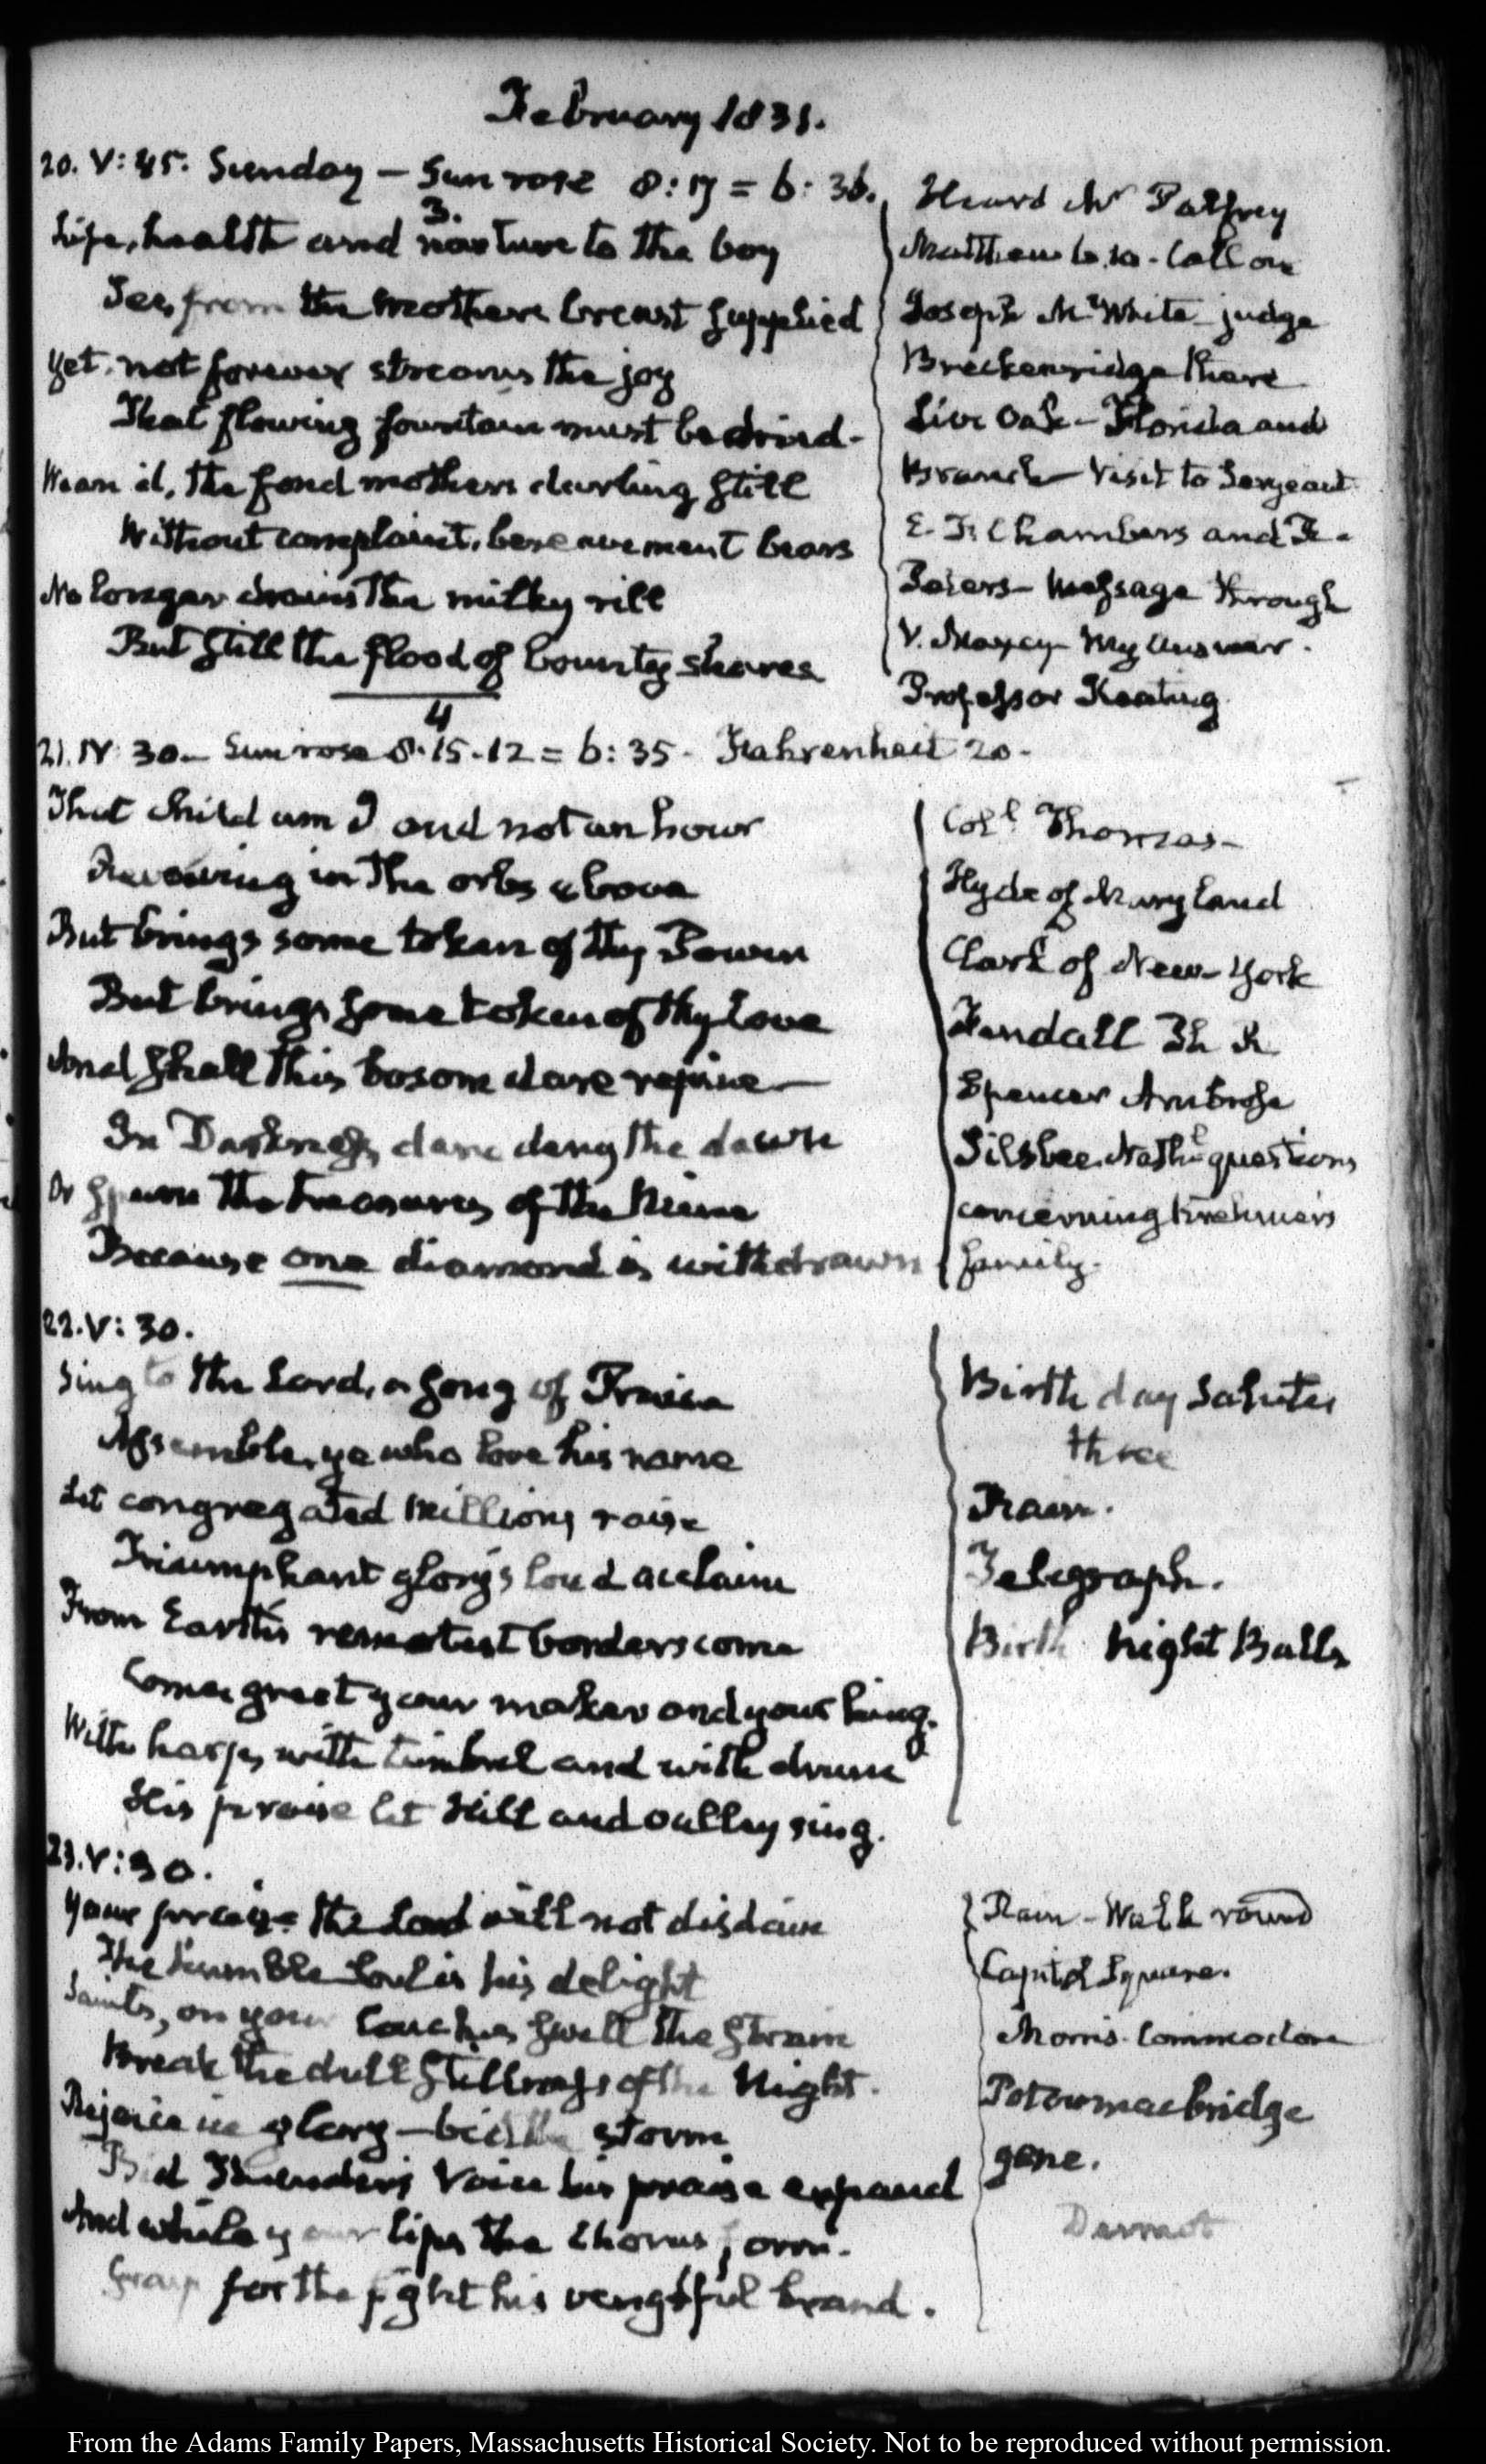 February 1831.
20. V: 45. Sunday – Sun rose 8: 17 = 6: 36.
3.
Life, health and nurture to the boy
See, from the mothers breast supplied
Yet, not forever streams the joy
That flowing fountain must be dried –
Wean'd, the fond mothers darling still
Without complaint, bereavement bears
No longer drains the milky rill
But still the flood of bounty shares
Heard Mr Palfrey
Matthew 6. 10 – Call on
Joseph M. White – judge
Breckenridge there
Live Oak – Florida and
Branch – Visit to Sergeant
E. F. Chambers and
Peters – Message through
V. Maxcy – My answer.
Professor Keating
4
21. IV: 30 – Sun rose 8. 15. 12 = 6: 35 – Fahrenheit 20 –
That child am I and not an hour
Revolving in the orbs above
But brings some token of thy Power
But brings some token of thy Love
And shall this bosom dare repine –
In Darkness, dare deny the dawn
Or spurn the treasures of the Mine
Because one diamond is withdrawn
Coll. Thomas –
Hyde of Maryland
Clark of New-York
Kendall
Spencer Ambrose
Silsbee. Nathl. questions
concerning Krehmer's
family.
22. V: 30.
Sing to the Lord, a song of Praise
Assemble, ye who love his name
Let congregated Millions raise
Triumphant glory's loud acclaim
From Earth's remotest borders come
Come, greet your maker and your king.
With harp, with timbrel and with drum
His praise let Hill and valley sing.
Birth day Salutes
three
Rain.
Telegraph.
Birth night Balls
23. V: 30.
Your praise the Lord will not disdain
The humble soul is his delight
Saints, on your Couches swell the strain
Break the dull stillness of the Night.
Rejoice in glory – bid the storm
Bid Thunder's Voice his praise expand
And while your lips the Chorus form.
Grasp for the fight his vengeful brand.
Rain – Walk round
Capitol Square.
Morris – Commodore
Potowmac bridge
gone.
From the Adams Family Papers, Massachusetts Historical Society. Not to be reproduced without permission.